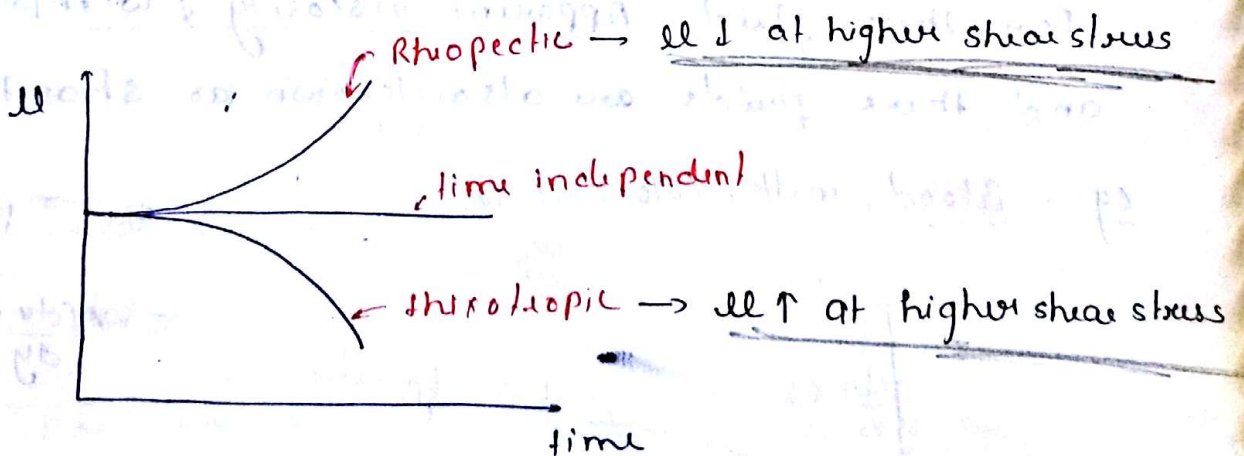 Rheopectic → μ ↓ at higher shear stress
μ
time independent
thixotropic → μ ↑ at higher shear stress
time
eg
dy